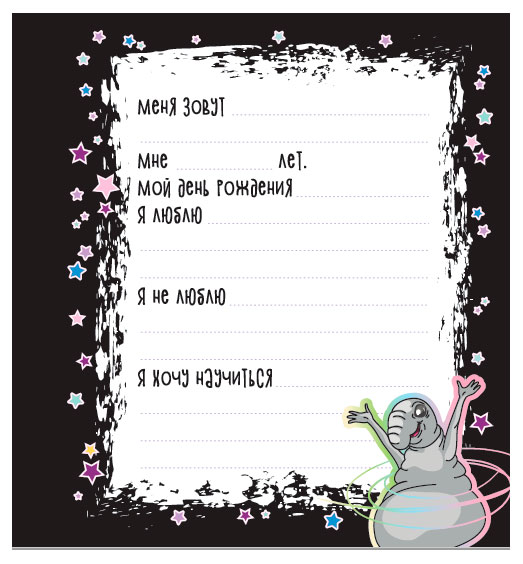 меня зовут
мне лет.
мой день рождения
я люблю
я не люблю
я хочу научиться